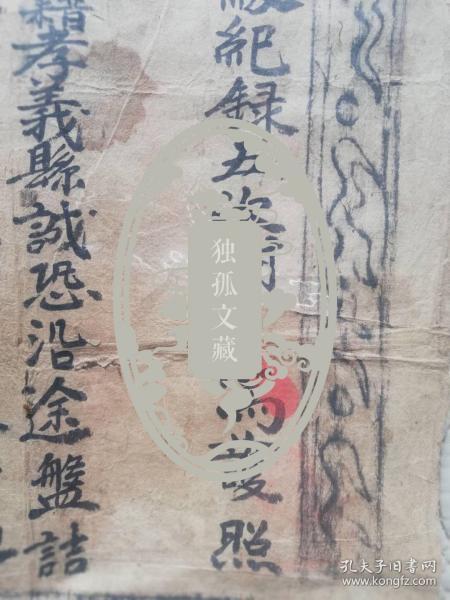 級紀録五次
為發照
籍孝義縣誠恐沿途盤詰
独孤文藏
孔夫子旧书网
www.kongfz.com